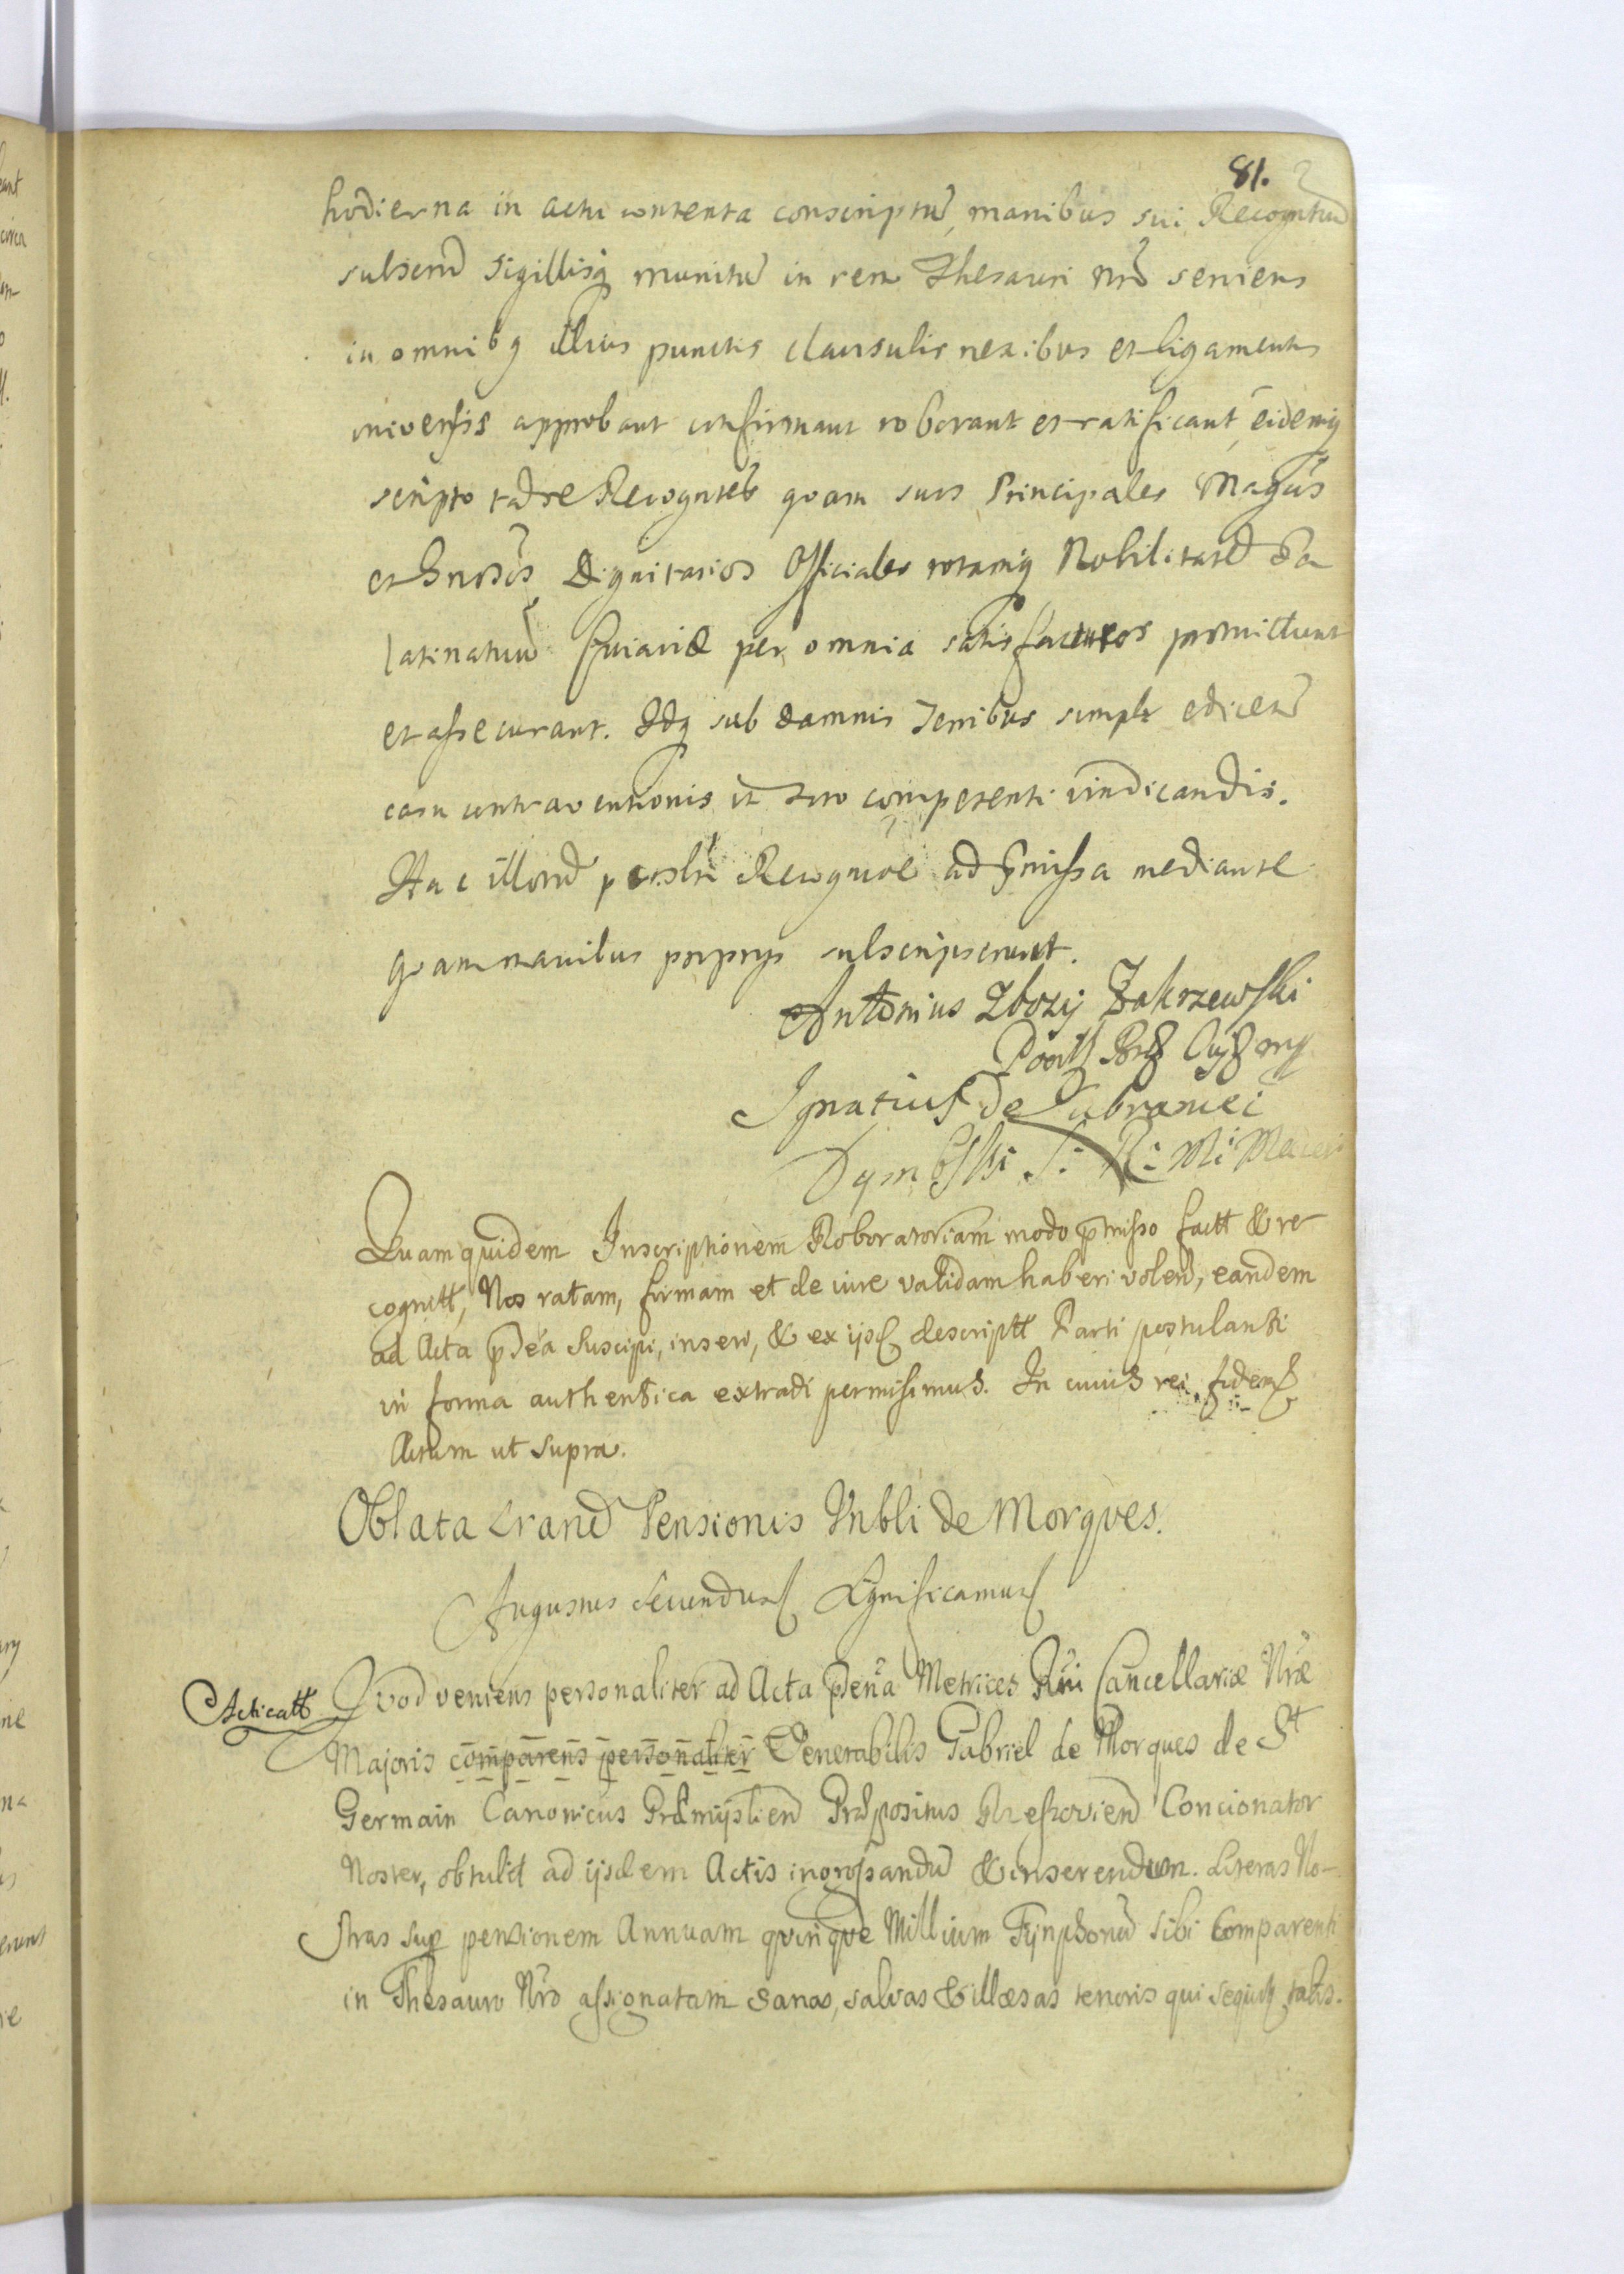 81.
hodierna in actu contenta conscriptū, manibus sui Recognitiū
subscrip̄ Sigillisq̨ munitū in rem Thesauri Nrō serviens
in omnibq illius punctis clausulis nexibus et ligamentis
universis approbant confirmant roborant et ratificant, eidemq̨
scripto tā se Recogntēs quam suos Principales Magcōs
et Gnrōsōs Dignitarios Officiales totamq̨ Nobilitatē Pa
latinatuū Cuiaviæ per omnia satisfacturos promittunt
et assecurant. Idq̨ sub damnis Terribus simplr edicen̄
casu contraventionis in Foro competenti vindicandis.
Hac illorū psnali Recogne ad p̄missa mediante
quam manibus proprys subscripserunt.
Antonius Zbozy Zakrzewski
Ignatius de Lubraniec
Dymbski S: R: Mi
Quam quidem Inscriptionem Roboratoriam modo p̄misso factt & re
cognitt, Nos ratam, firmam et de iure validam haberi volen̄, eandem
ad Acta p̄dcā Suscipi, inseri, & ex ijsd descriptt Parti postulanti
in forma authentica extradi permisimus. In cuius rei fidem
Actum ut supra.
Oblata Lrarū Pensionis Vnbli de Morques.
Augustus Secundus Significamus
Acticatt
Quod veniens personaliter ad Acta p̄sena Metrices Rñi Cancellariæ Nræ
Majoris comparens personaliter Venerabilis Gabriel de Morques de St
Germain Canonicus Præmysliens Præpositus Rzeszovien̄ Concionator
Noster, obtulit ad ijsdem Actis ingrossandū & inserendum. Literas No-
stras sup pensionem Annuam quinque Millium Tynphonū sibi Comparenti
in Thesauro Nrō assignatam sanas, salvas & illæsas tenoris qui sequitq̨ talis.